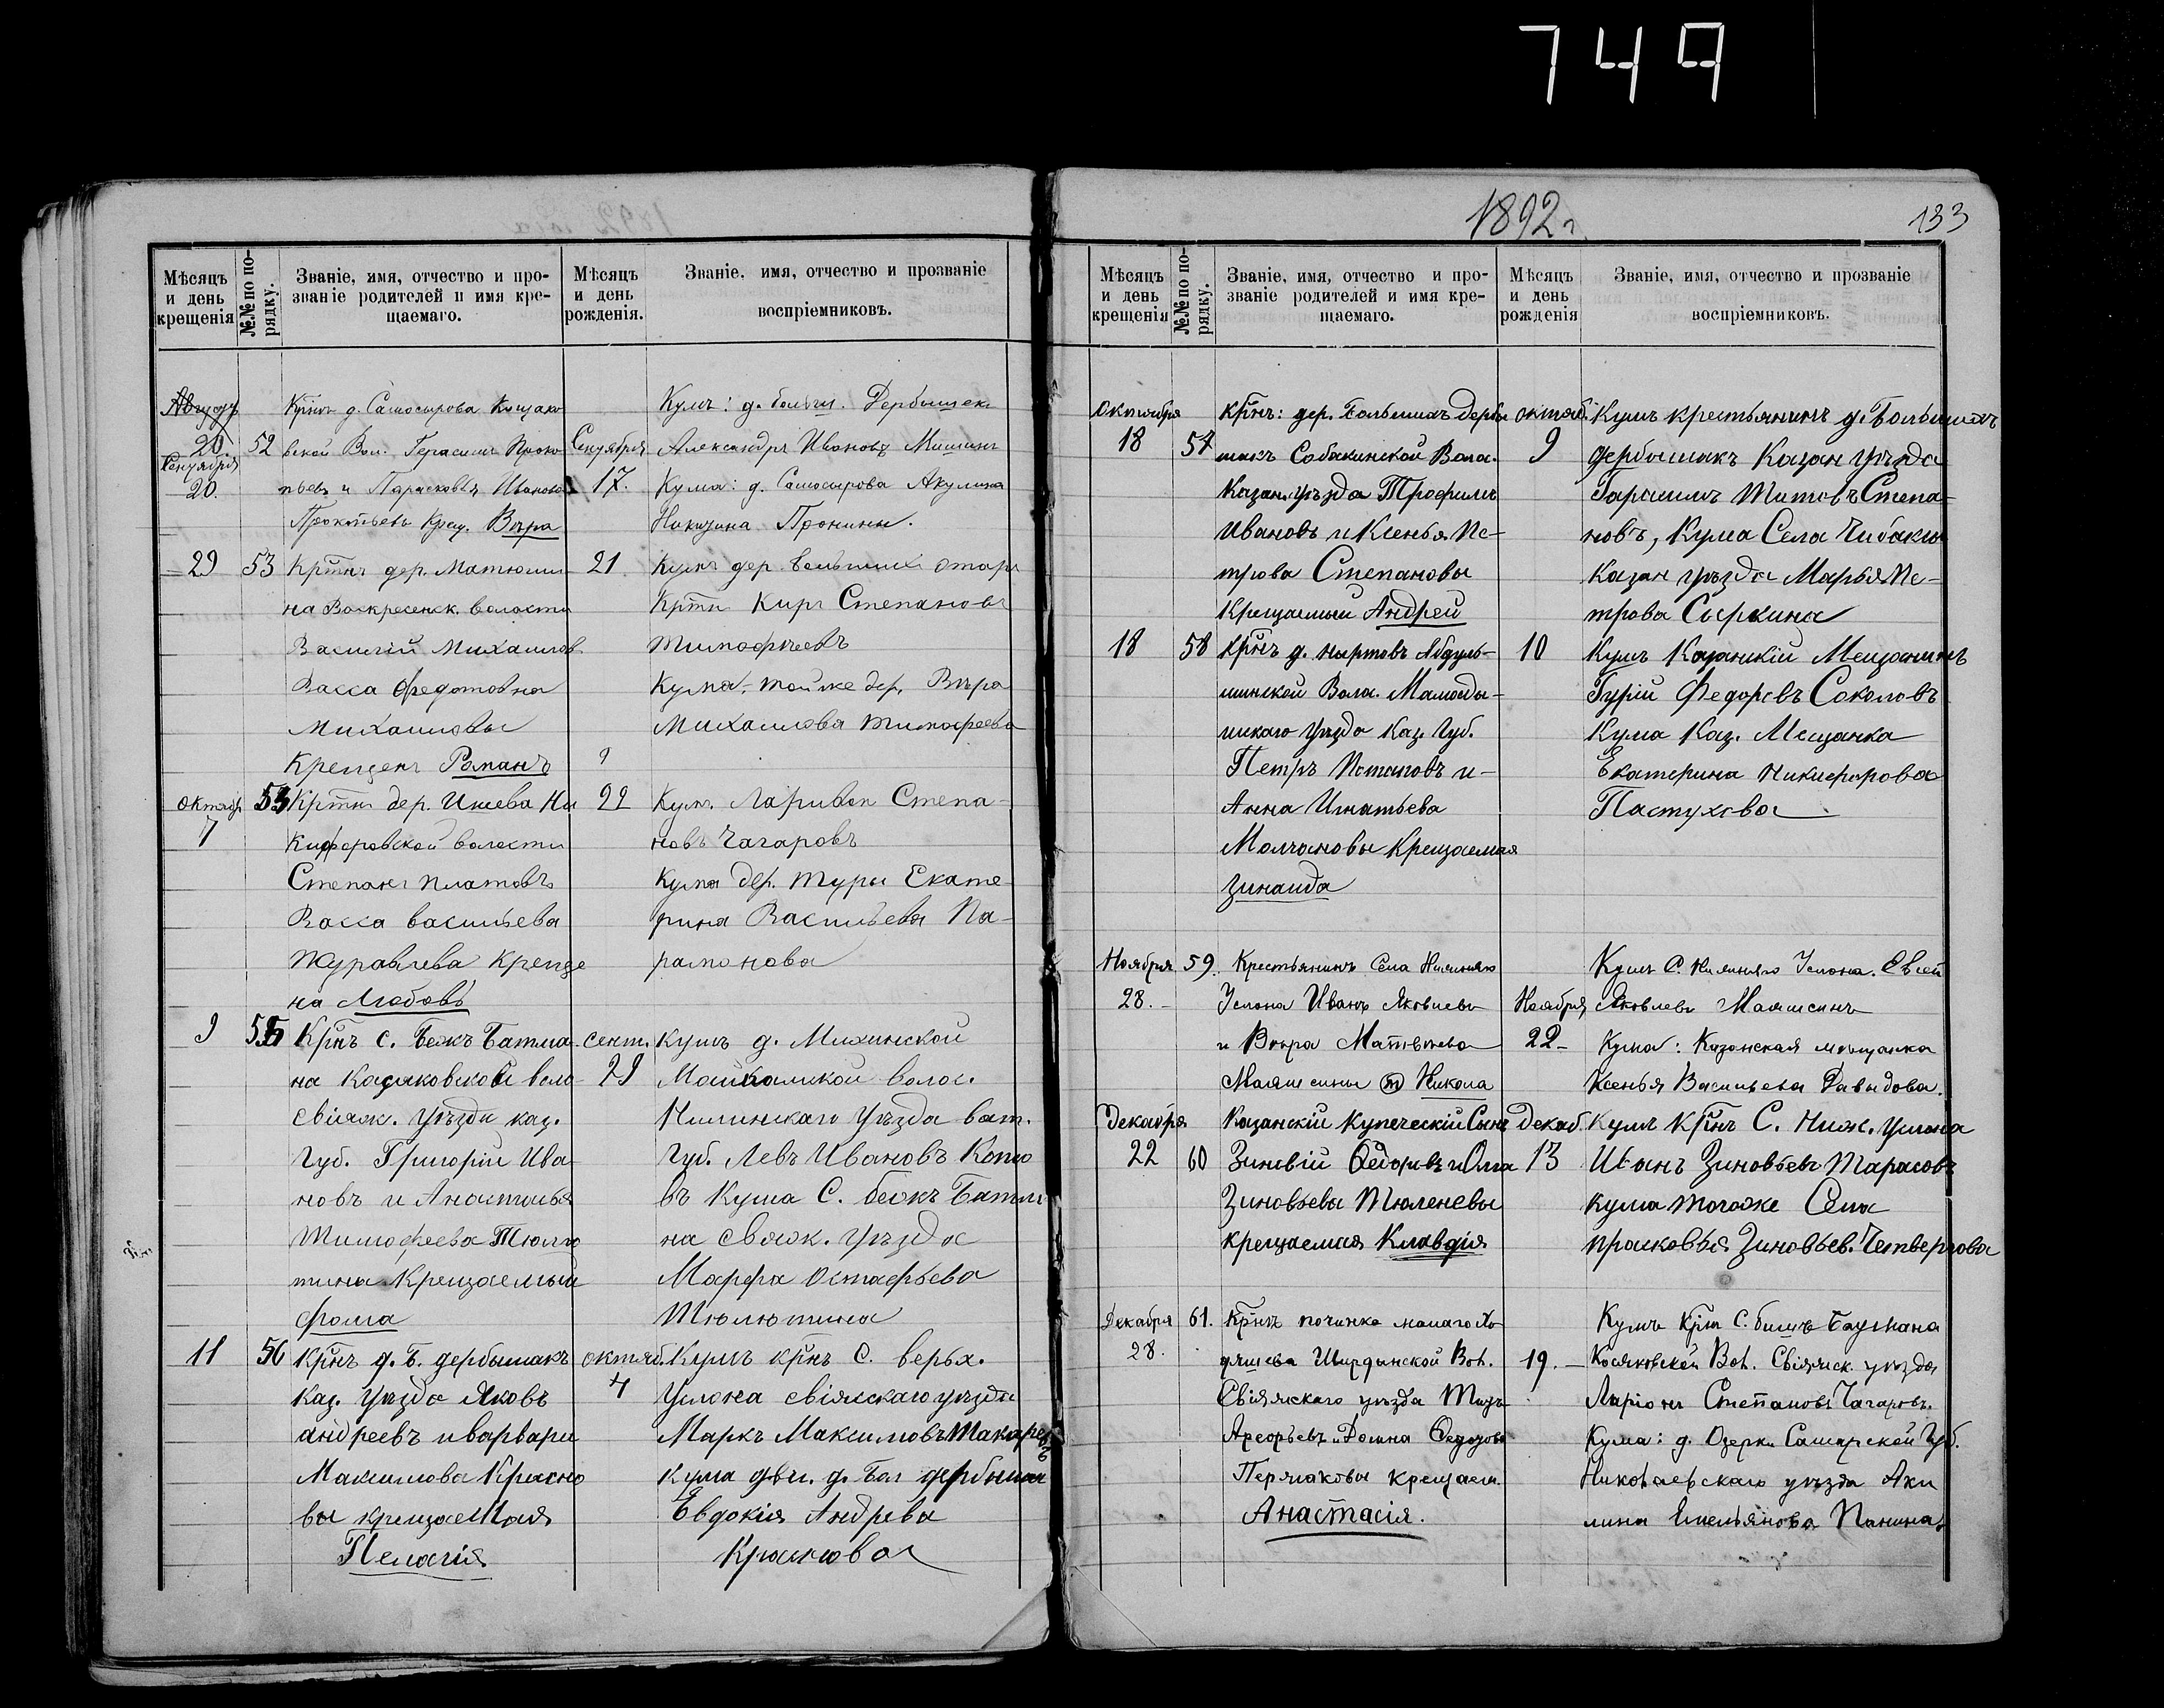 749
1892 г.
133
Мѣсяцъ и день крещенія
№№ по порядку.
Званіе, имя, отчество и прозваніе родителей и имя крещаемаго.
Мѣсяцъ и день рожденія.
Званіе, имя, отчество и прозваніе воспріемниковъ.
Августъ
20.
Сентября
20.
52
Крнъ д. Самосырова Кощаков
ской Вол. Герасимъ Проко
пьевъ и Парасковья Иванова
Прокопьевы Крещ. Вѣра
Сентября
17.
Кумъ: д. больш. Дербышек
Александръ Ивановъ Мишинъ
Кума: д. Самосырова Акулина
Никизина Пронины.
29
53
Кртнъ дер. Матюши
на Воскресенск. волости
Василій Михаилов
Васса Федотовна
Михаиловы
Крещенъ Романъ
21
Кумъ дер. Большихъ Отаръ
Кртн Киръ Степановъ
Тимофѣевъ
Кума, тойже дер. Вѣра
Михаилова Тимофеева
Октябр
7
Кртнъ дер. Ишева Ни
киферовской волости
Степанъ Платовъ
Васса Васильева
Журавлева Креще
на Любовь
22
Кумъ. Ларивон Степа-
новъ Чагаровъ
Кума дер. Туры Екате
рина Васильева Па-
рамонова
9
55
Крнъ с. Бежъ Батма-
на Косяковской воло-
Свіяж. Уѣзда каз.
Губ. Григорій Ива-
новъ и Анастасья
Тимофеева Тюлю
тина Крещаемый
Фома
сент.
29
Кумъ д. Михинской
волос.
Уѣзда Вят.
Губ. Левъ Ивановъ Копы
въ Кума С. бежъ Батма
на Свяж. Уѣзда
Марфа Остафьева
Тюлютина
11
56
Крнъ д. Б. дербышакъ
Каз. Уѣзда Яковъ
Андреевъ и Варвары
Максимова Красно
вы крещаемая
Пелагія
октяб.
4
Кумъ крнъ С. верхъ.
Услона Свіяжскаго уѣзда
Маркъ Максимовъ Макаревъ
Кума двц. д. Бол дербышак
Евдокія Андрева
Краснова
Мѣсяцъ и день крещенія
№№ по порядку.
Званіе, имя, отчество и прозваніе родителей и имя крещаемаго.
Мѣсяцъ и день рожденія
Званіе, имя, отчество и прозваніе воспріемниковъ.
Октября
18
57
крнъ: дер. Большихъ Дербы
шакъ Собакинской Воло.
Казан. уѣзда Трофимъ
Ивановъ и Ксенья Пе-
трова Степановы
Крещаемый Андрей
октяб.
9
Кумъ крестьянинъ д. Большихъ
дербышакъ Казан уѣзда
Гарасимъ Титовъ Степа-
новъ, Кума Села Чибакш
Казан уѣзда Марья Пе-
трова Сыркина
18
58
крнъ д. Ныртовъ Абдуль-
шинской Воло. Мамады-
шкаго Уѣзда Каз. Губ.
Петръ Потаповъ и-
Анна Игнатьева
Молчановы Крещаемая
Зинаида
10
Кумъ Казанскій Мещанинъ
Гурій Федоровъ Соколовъ
Кума Каз. Мещанка
Екатерина Никиферова
Пастухова
Ноября
28.
59.
Крестьянинъ Села Нижняго
Услона Иванъ Яковлевъ
и Вѣра Матвѣева
Маяшсины Никола
Ноября
22-
Кумъ С. Нижняго Услона. Евсей
Яковлевъ Маяшсинъ
Кума: Казанская мѣщанка
Ксенья Васильева Давыдова.
Декабря
22
60
Казанскій Купеческій Сынъ
Зиновій Ѳедоровъ и Олга
Зиновьевы Тюленевы
крещаемая Клавдія
Декаб.
13
Кумъ крнъ С. Ниж. Услона
Иванъ Зиновьевъ Тарасовъ
кума тогоже Села
прасковья Зиновьев. Четвергова
Декабря
28.
61.
Крнъ починка малаго Хо
дяшева Ширданской Вол.
Свіяжскаго уѣзда Титъ
и Домна Федулова
Перлаковы крещаем.
Анастасія.
19.
Кумъ крнъ С. бишъ Баутмана
Косяковской Вол. Свіяжск. уѣзда
Ларіонъ Степановъ Чагаровъ.
Кума: д. Озерки Самарской Губ.
Николаевскаго уѣзда Аку
лина Емельянова Панина.